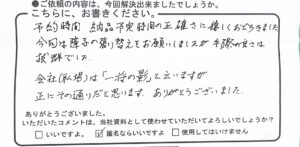 ●ご依頼の内容は、今回解決出来ましたでしょうか。
こちらに、お書きください。
予約時間 納品予定時間の正確さに嬉しくおどろきました
今回は障子の張り替えをお願いしましたが 手際の良さは
抜群でした。
会社(私塔)は「一将の影」と云いますが
正にその通りだと思います。ありがとうございました。
ありがとうございました。
いただいたコメントは、当社資料として使わせていただいてよろしいでしょうか?
□いいですよ。 ☑匿名ならいいですよ □使用してはいけません